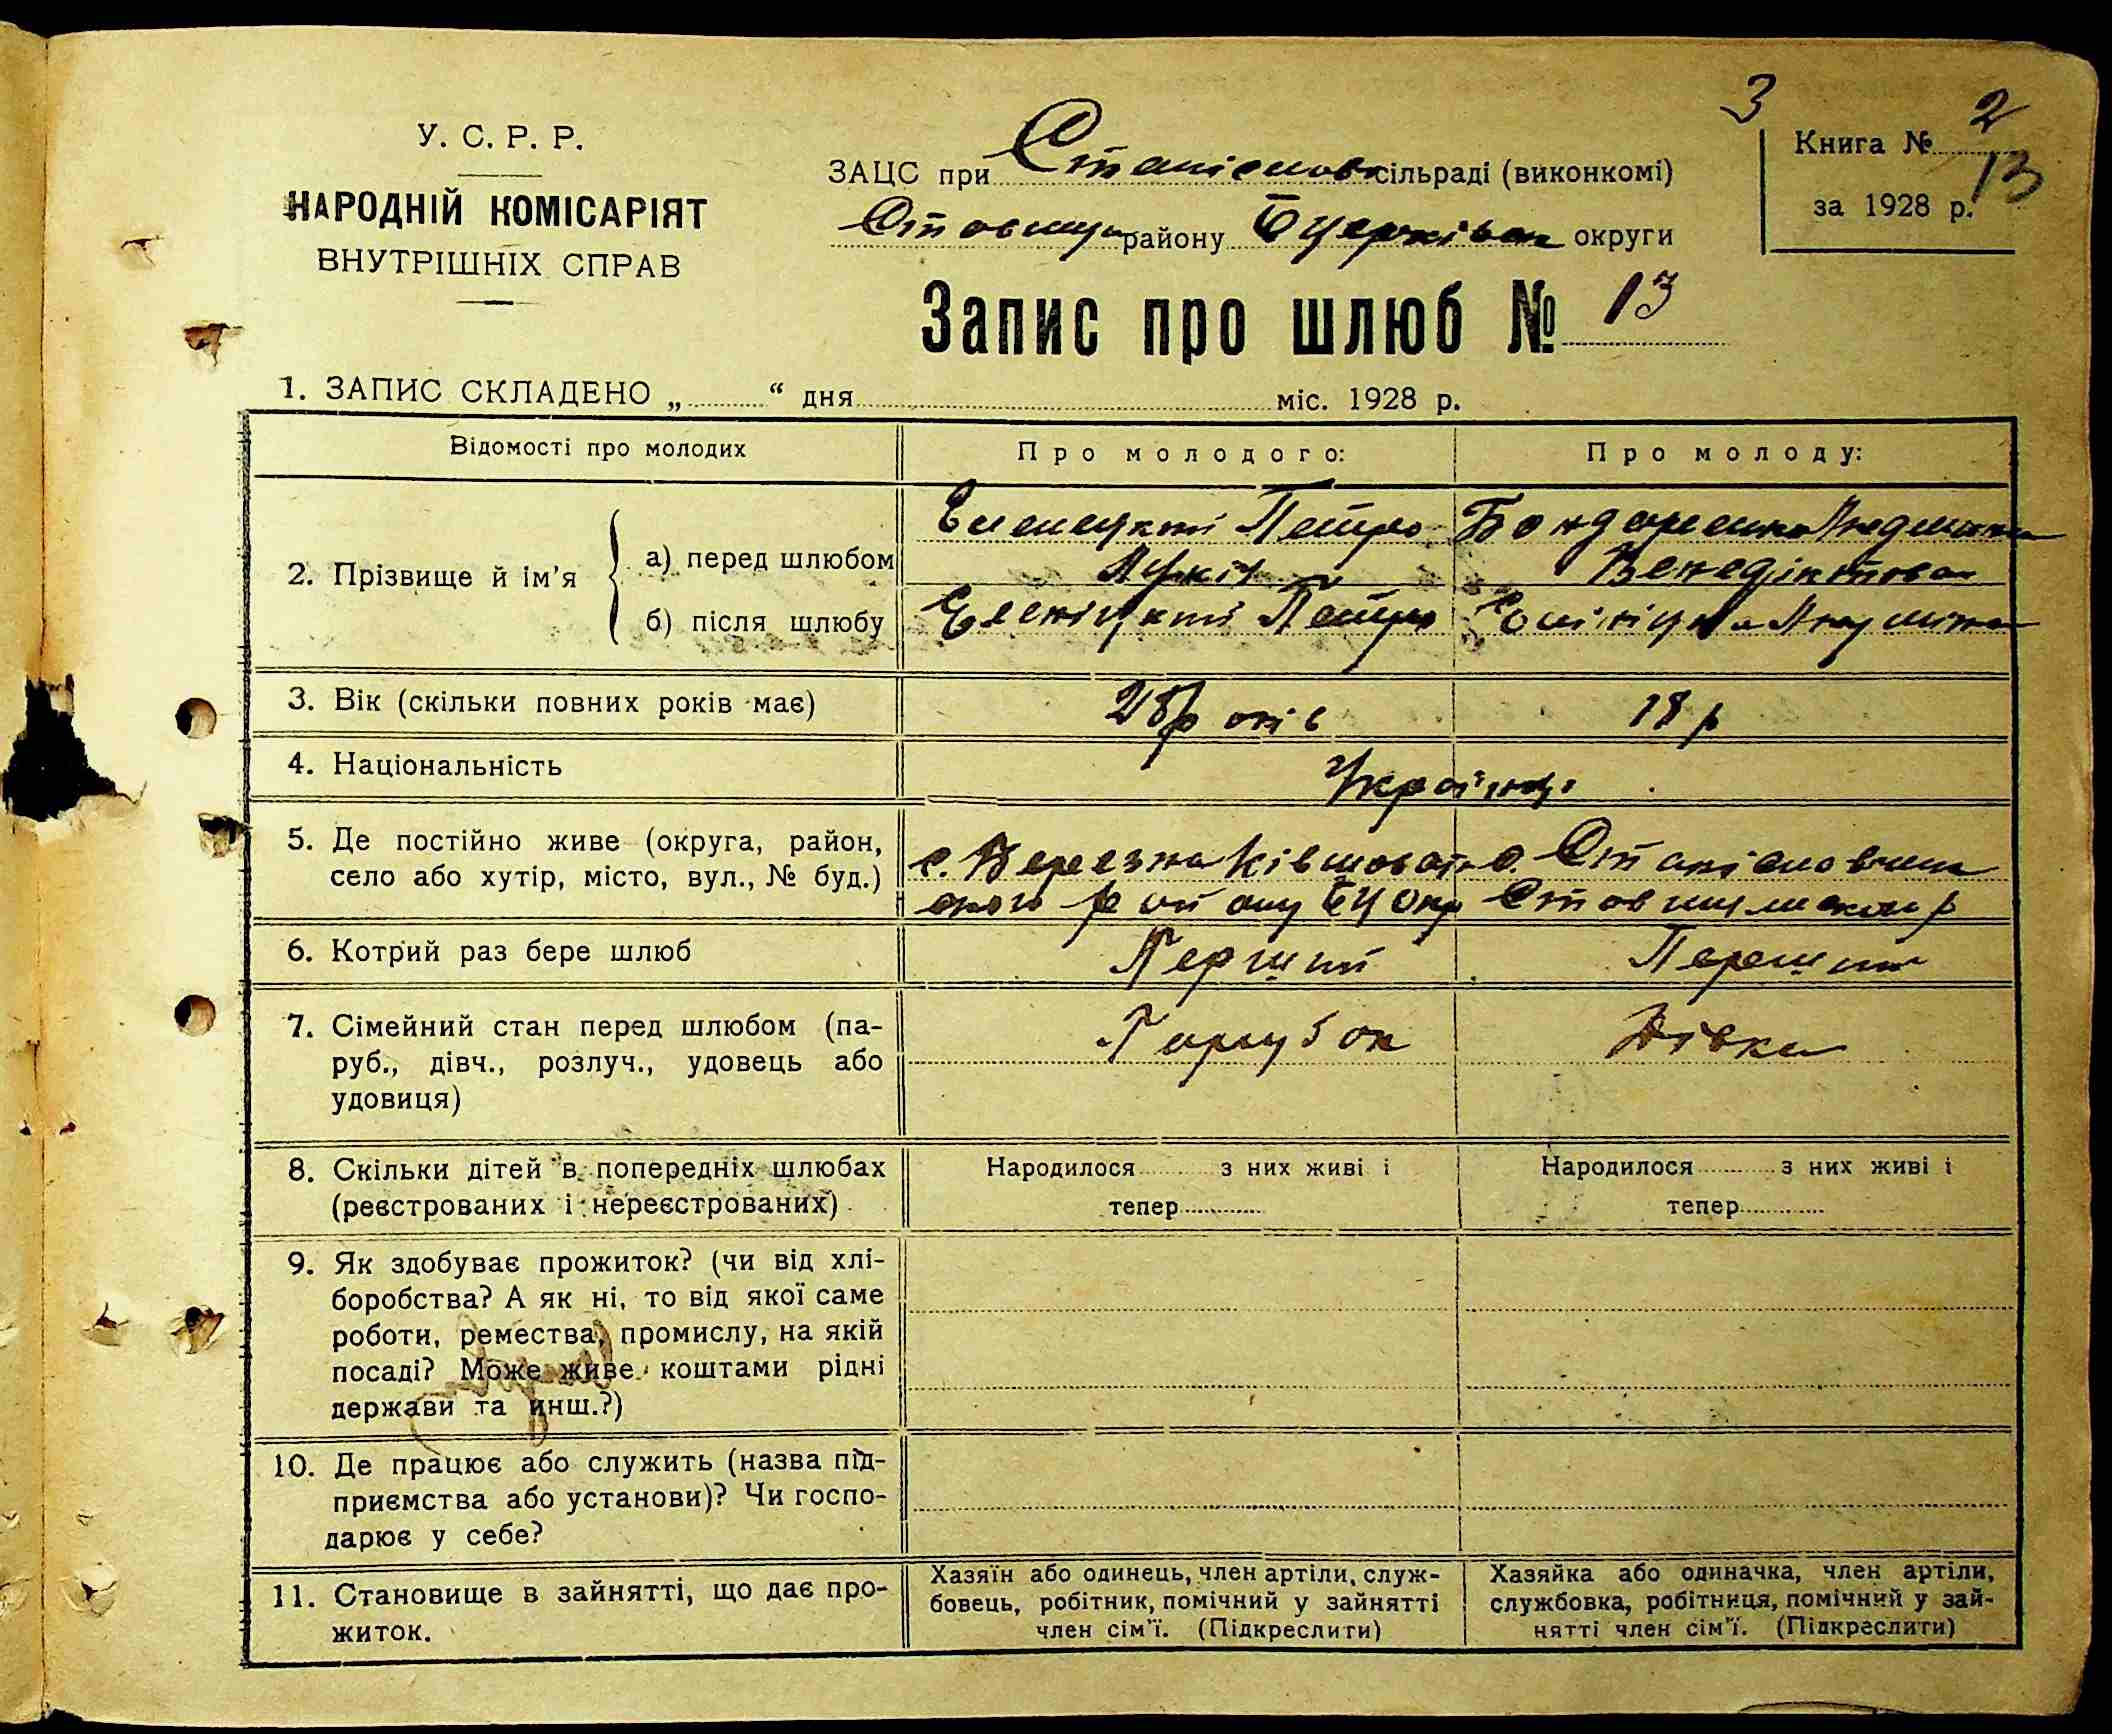 3
У. С. Р. Р.
НАРОДНІЙ КОМІСАРІЯТ
ВНУТРІШНІХ СПРАВ
ЗАЦС при Станіслов сільраді (виконкомі)
Ставищ району Бцерківськ округи
Книга № 2
13
за 1928 р.
Запис про шлюб № 13
1. ЗАПИС СКЛАДЕНО „ “ дня міс. 1928 р.
Відомості про молодих
Про молодого:
Про молоду:
2. Прізвище й ім’я
а) перед шлюбом
Петро
Бондаренко
Венедіктовна
б) після шлюбу
Петро
3. Вік (скільки повних років має)
28 років
18 р
4. Національність
Українці
5. Де постійно живе (округа, район,
село або хутір, місто, вул., № буд.)
с. Березнa Ківшоват
ського району БЦ Окр
с. Станіславчик
Ставищанського р
6. Котрий раз бере шлюб
Перший
Перший
7. Сімейний стан перед шлюбом (па-
руб., дівч., розлуч., удовець або
удовиця)
Парубок
Дівка
8. Скільки дітей в попередніх шлюбах
(реєстрованих і нереєстрованих)
Народилося з них живі і
тепер
Народилося з них живі і
тепер
9. Як здобуває прожиток? (чи від хлі-
боробства? А як ні, то від якої саме
роботи, ремества, промислу, на якій
посаді? Може живе коштами рідні
держави та инш.?)
10. Де працює або служить (назва під-
приємства або установи)? Чи госпо-
дарює у себе?
11. Становище в зайнятті, що дає про-
житок.
Хазяїн або одинець, член артіли, служ-
бовець, робітник, помічний у зайнятті
член сім’ї. (Підкреслити)
Хазяйка або одиначка, член артіли,
службовка, робітниця, помічний у зай-
нятті член сім’ї. (Підкреслити)